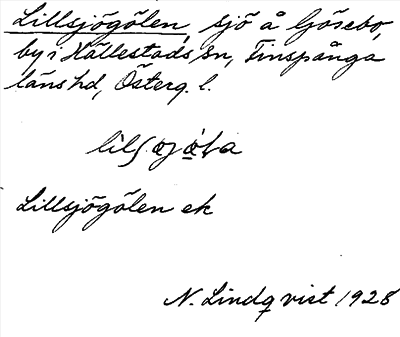 Lillsjögölen, sjö å Gösebo,
by i Hällestads sn, Finspånga
läns hd, Österg. l.
Lillsjögölen ek
N. Lindqvist 1928